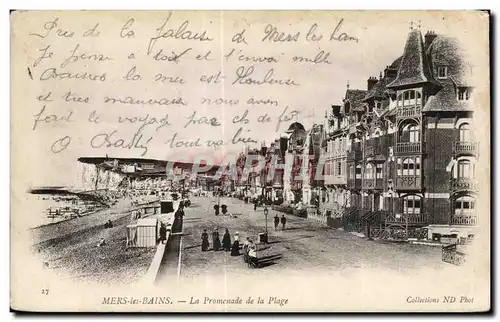 Près de la falaise de Mers les bain
je pense a toi et t'envoi mille
Baisers la mer est Houleuse
et très mauvais nous avon
fait le voyage pas de
O Bailly tout va bi
CPARAMA.COM
27
MERS-les-BAINS. — La Promenade de la Plage
Collections ND Phot